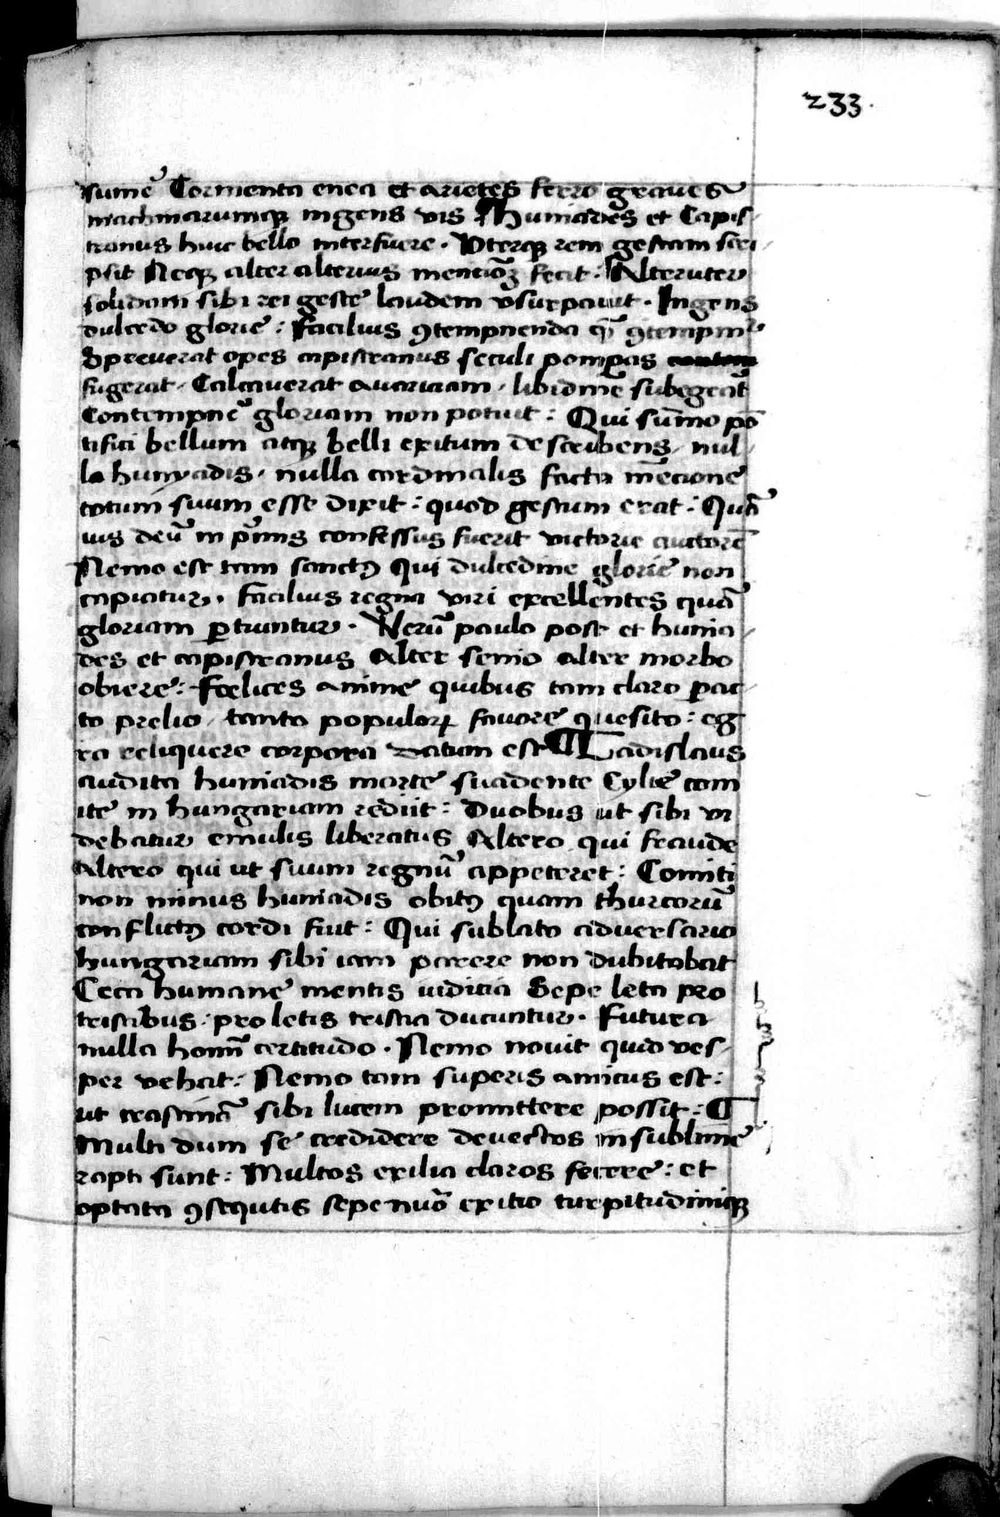 233.
sumē Tormenta enea et arietes ferro graues
machinarumqȝ ingens vis Huniades et Capis-
tranus huic bello interfuere. Vterqȝ rem gestam scri-
psit Necqȝ alter alterius mentiōȝ fecit : Alteruter
solidam sibi rei geste laudem vsurpauit. Ingens
dulcedo glorie : facilius ꝯtempnenda qᷓ ꝯtempnit᷑
Spreuerat opes capistranus seculi pompas
fugerat. Calcauerat auariciam, libidinē subegerāt
Contempnē gloriam non potuit : Qui sūmo pō
tifici bellum atqȝ belli exitum describens, nul-
la hunyadis, nulla cardinalis facta mēcione
totum suum esse dixit : quod gestum erat : Quā
uis deū in pͥmis confessus fuerit victorie auctorē
Nemo est tam sanctꝯ Qui dulcedine glorie non
capiatur, Facilius regna viri excellentes quā
gloriam ꝑtiuntur. Verū paulo post et hunia-
des et capistranus Alter senio alter morbo
obiere : Foelices anime quibus tam claro ꝑac-
to prelio, tanto populoꝝ fauore quesito : eg
ra reliquere corpora datum est ¶ Ladislaus
audita huniadis morte suadente Cylie com
ite in hungariam rediit : Duobus ut sibi vi
debatur emulis liberatus Altero qui fraude
Altero qui ut suum regnū appeteret : Comiti
non minus huniadis obitꝯ quam thurcorū
conflictꝯ cordi fuit : Qui sublato aduersario
hungariam sibi iam parere non dubitabat
Ceca humane mentis iuditia Sepe leta pro
tristibus, pro letis tristia ducuntur. Futura
nulla homī certitudo. Nemo nouit quid ves-
per vehat : Nemo tam superis amicus est :
ut crastinā sibi lucem promittere possit : ¶
Multi dum se credidere deuectos in sublime
rapti sunt : Multos exilia claros fecere : et
optata ꝯsequtis sepenuō exitio turpitudiniqȝ